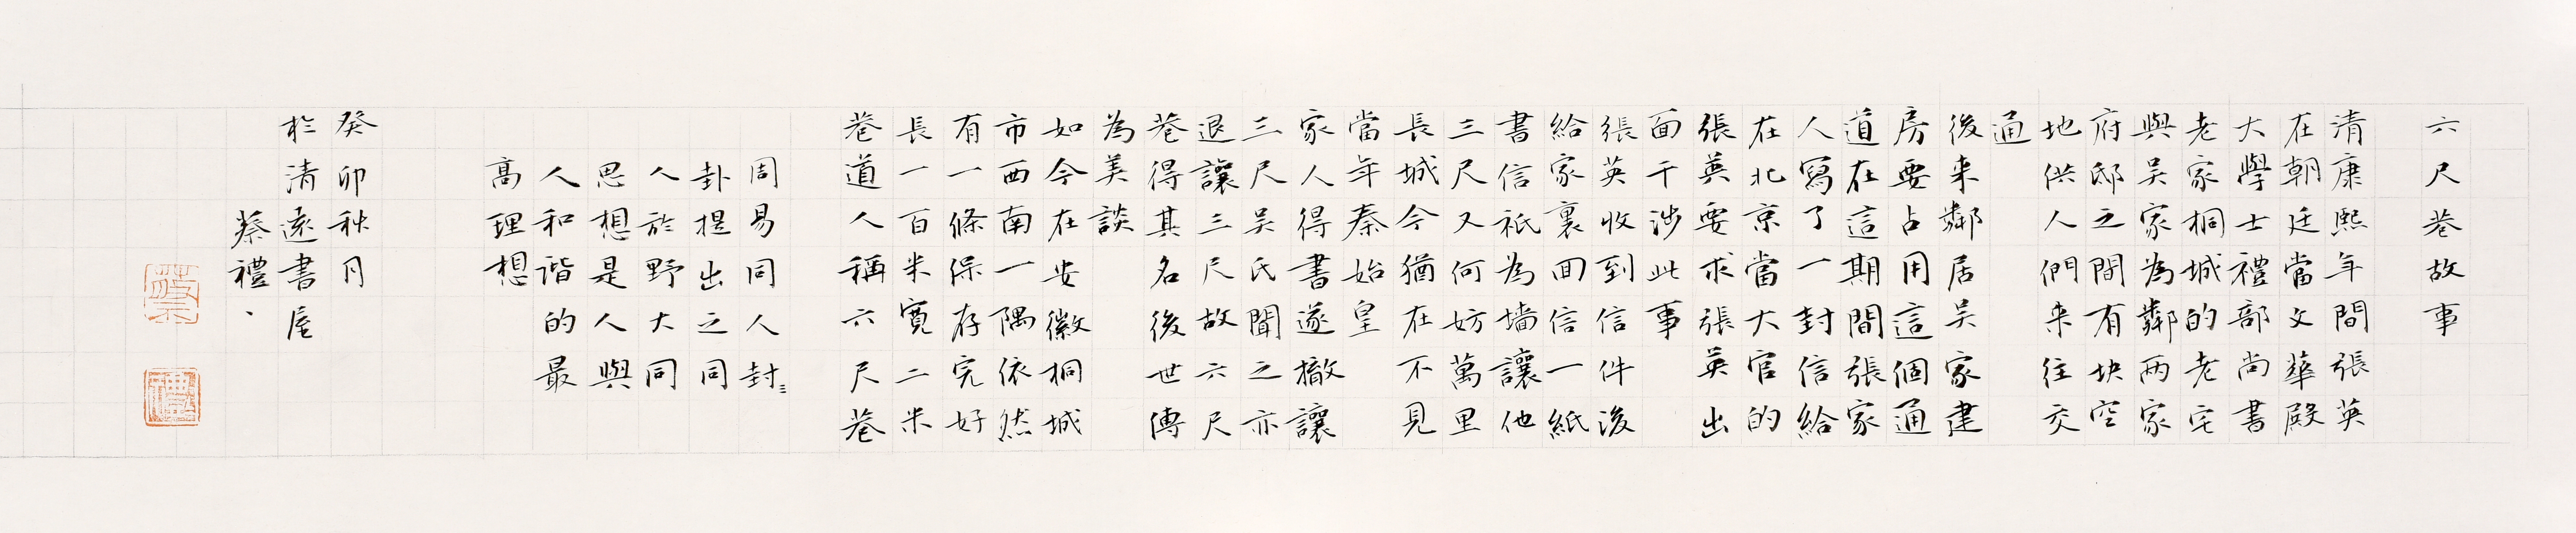 六尺巷故事
清康熙年間張英
在朝廷當文華殿
大學士禮部尚書
老家桐城的老宅
與吴家為鄰两家
府邸之間有块空
地供人們来往交
通
後来鄰居吴家建
房要占用這個通
道在這期間張家
人寫了一封信給
在北京當大官的
張英要求張英出
面干涉此事
張英收到信件後
給家裏回信一紙
書信祇為墙讓他
三尺又何妨萬里
長城今猶在不見
當年秦始皇
家人得書遂撤讓
三尺吴氏聞之亦
退讓三尺故六尺
巷得其名後世傳
為美談
如今在安徽桐城
市西南一隅依然
有一條保存完好
長一百米寬二米
巷道人稱六尺巷
周易同人封
卦提出之同
人於野大同
思想是人與
人和谐的最
高理想
癸卯秋月
於清遠書屋
蔡禮